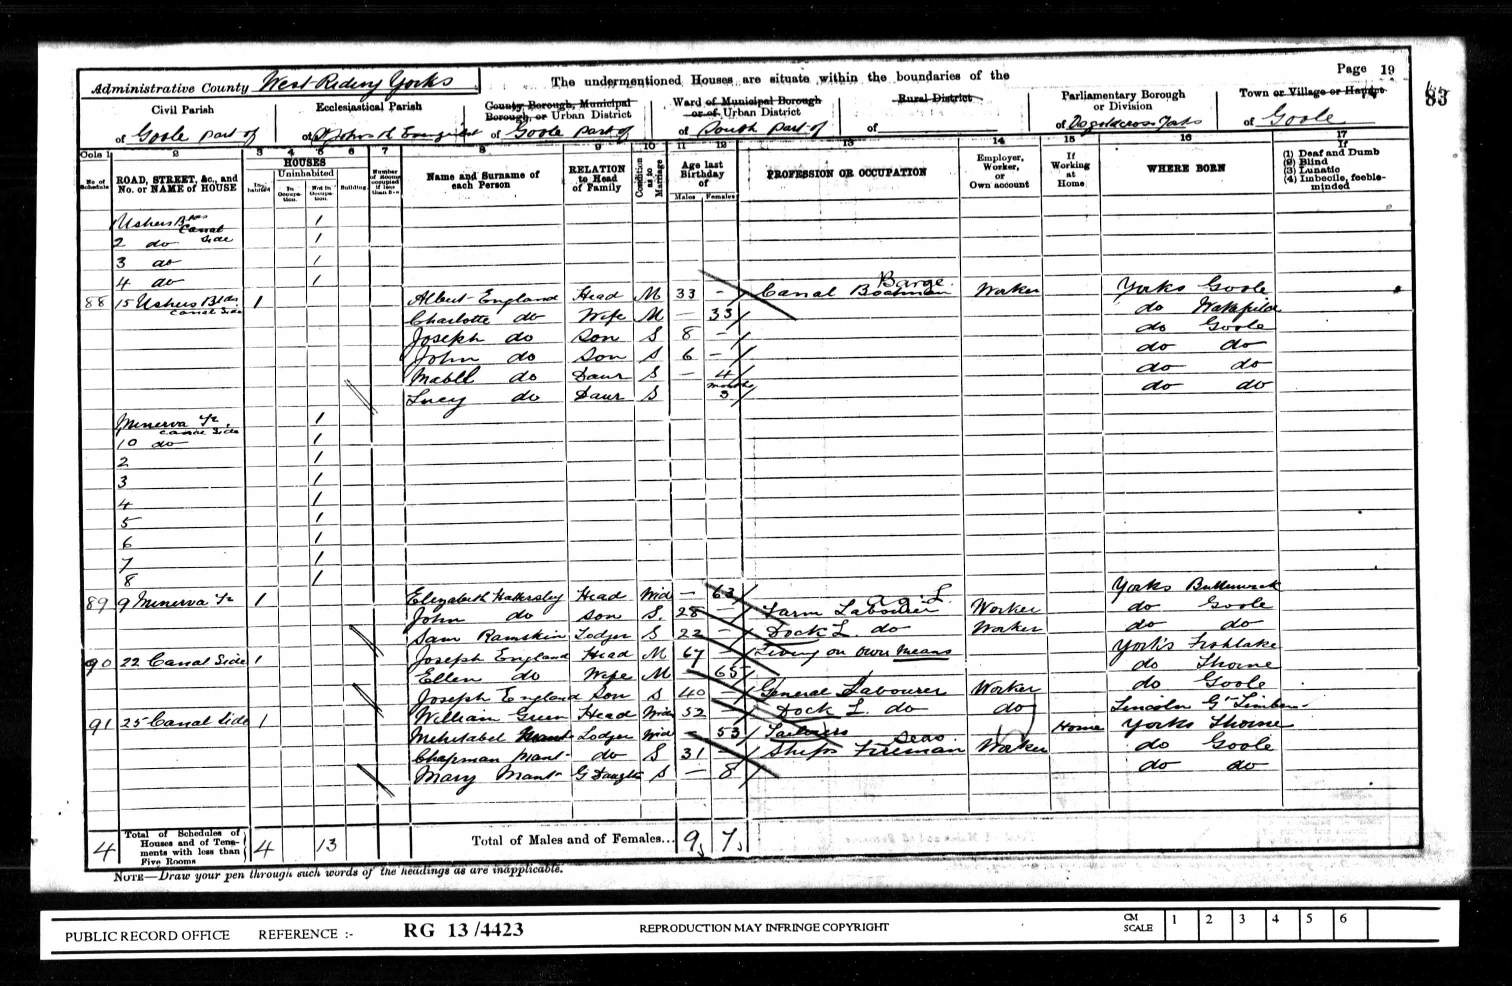 Page 19
83
Administrative County West Riding Yorks
The undermentioned Houses are situate within the boundaries of the
Civil Parish
of Goole part of
Ecclesiastical Parish
of St John the Evangelist
County Borough, Municipal Borough, or Urban District
of Goole part of
Ward of Municipal Borough or of Urban District
of South part of
Rural District
of
Parliamentary Borough or Division
of Osgoldcross Yorks
Town or Village or Hamlet
of Goole
Cols 1 2 3 4 5 6 7 8 9 10 11 12 13 14 15 16 17
No. of Schedule
ROAD, STREET, &c., and No. or NAME of HOUSE
HOUSES
Inhabited
Uninhabited
In Occupation.
Not in Occupation.
Building.
Number of Rooms occupied if less than five
Name and Surname of each Person
RELATION to Head of Family
Condition as to Marriage
Age last Birthday of
Males Females
PROFESSION OR OCCUPATION
Employer, Worker, or Own account
If Working at Home
WHERE BORN
If
(1) Deaf and Dumb
(2) Blind
(3) Lunatic
(4) Imbecile, feeble-minded
1 Ushers Bldgs Canal Side 1
2 do 1
3 do 1
4 do 1
88 15 Ushers Bldgs Canal Side 1 Albert England Head M 33 – Canal Boatman Barge Worker Yorks Goole
Charlotte do Wife M – 33 do Wakefield
Joseph do Son S 8 – do Goole
John do Son S 6 – do do
Mabel do Daur S – 4 do do
Lucy do Daur S months 3 do do
Minerva Tr, Canal Side 1
10 do 1
2 1
3 1
4 1
5 1
6 1
7 1
8 1
89 9 Minerva Tr 1 Elizabeth Hattersley Head Wid – 63 Yorks Butterwick
John do Son S. 28 – Farm Labourer Worker do Goole
Sam Ramskin Lodger S 22 – Dock L. do Worker do do
90 22 Canal Side 1 Joseph England Head M 67 – Living on own means Yorks Fishlake
Ellen do Wife M – 65 do Thorne
Joseph England Son S 40 – General Labourer Worker do Goole
91 25 Canal Side 1 William Gunn Head Wid 52 – Dock L. do do Lincoln
Mehetabel Mant Lodger Wid – 53 Tailoress Home Yorks Thorne
Chapman Mant do S 31 Ships Fireman Seas Worker do Goole
Mary Mant G Daughter S – 8 do do
4 Total of Schedules of Houses and of Tenements with less than Five Rooms 4 13
Total of Males and of Females... 9 7
NOTE—Draw your pen through such words of the headings as are inapplicable.
PUBLIC RECORD OFFICE REFERENCE :- RG 13 /4423 REPRODUCTION MAY INFRINGE COPYRIGHT
CM SCALE 1 2 3 4 5 6